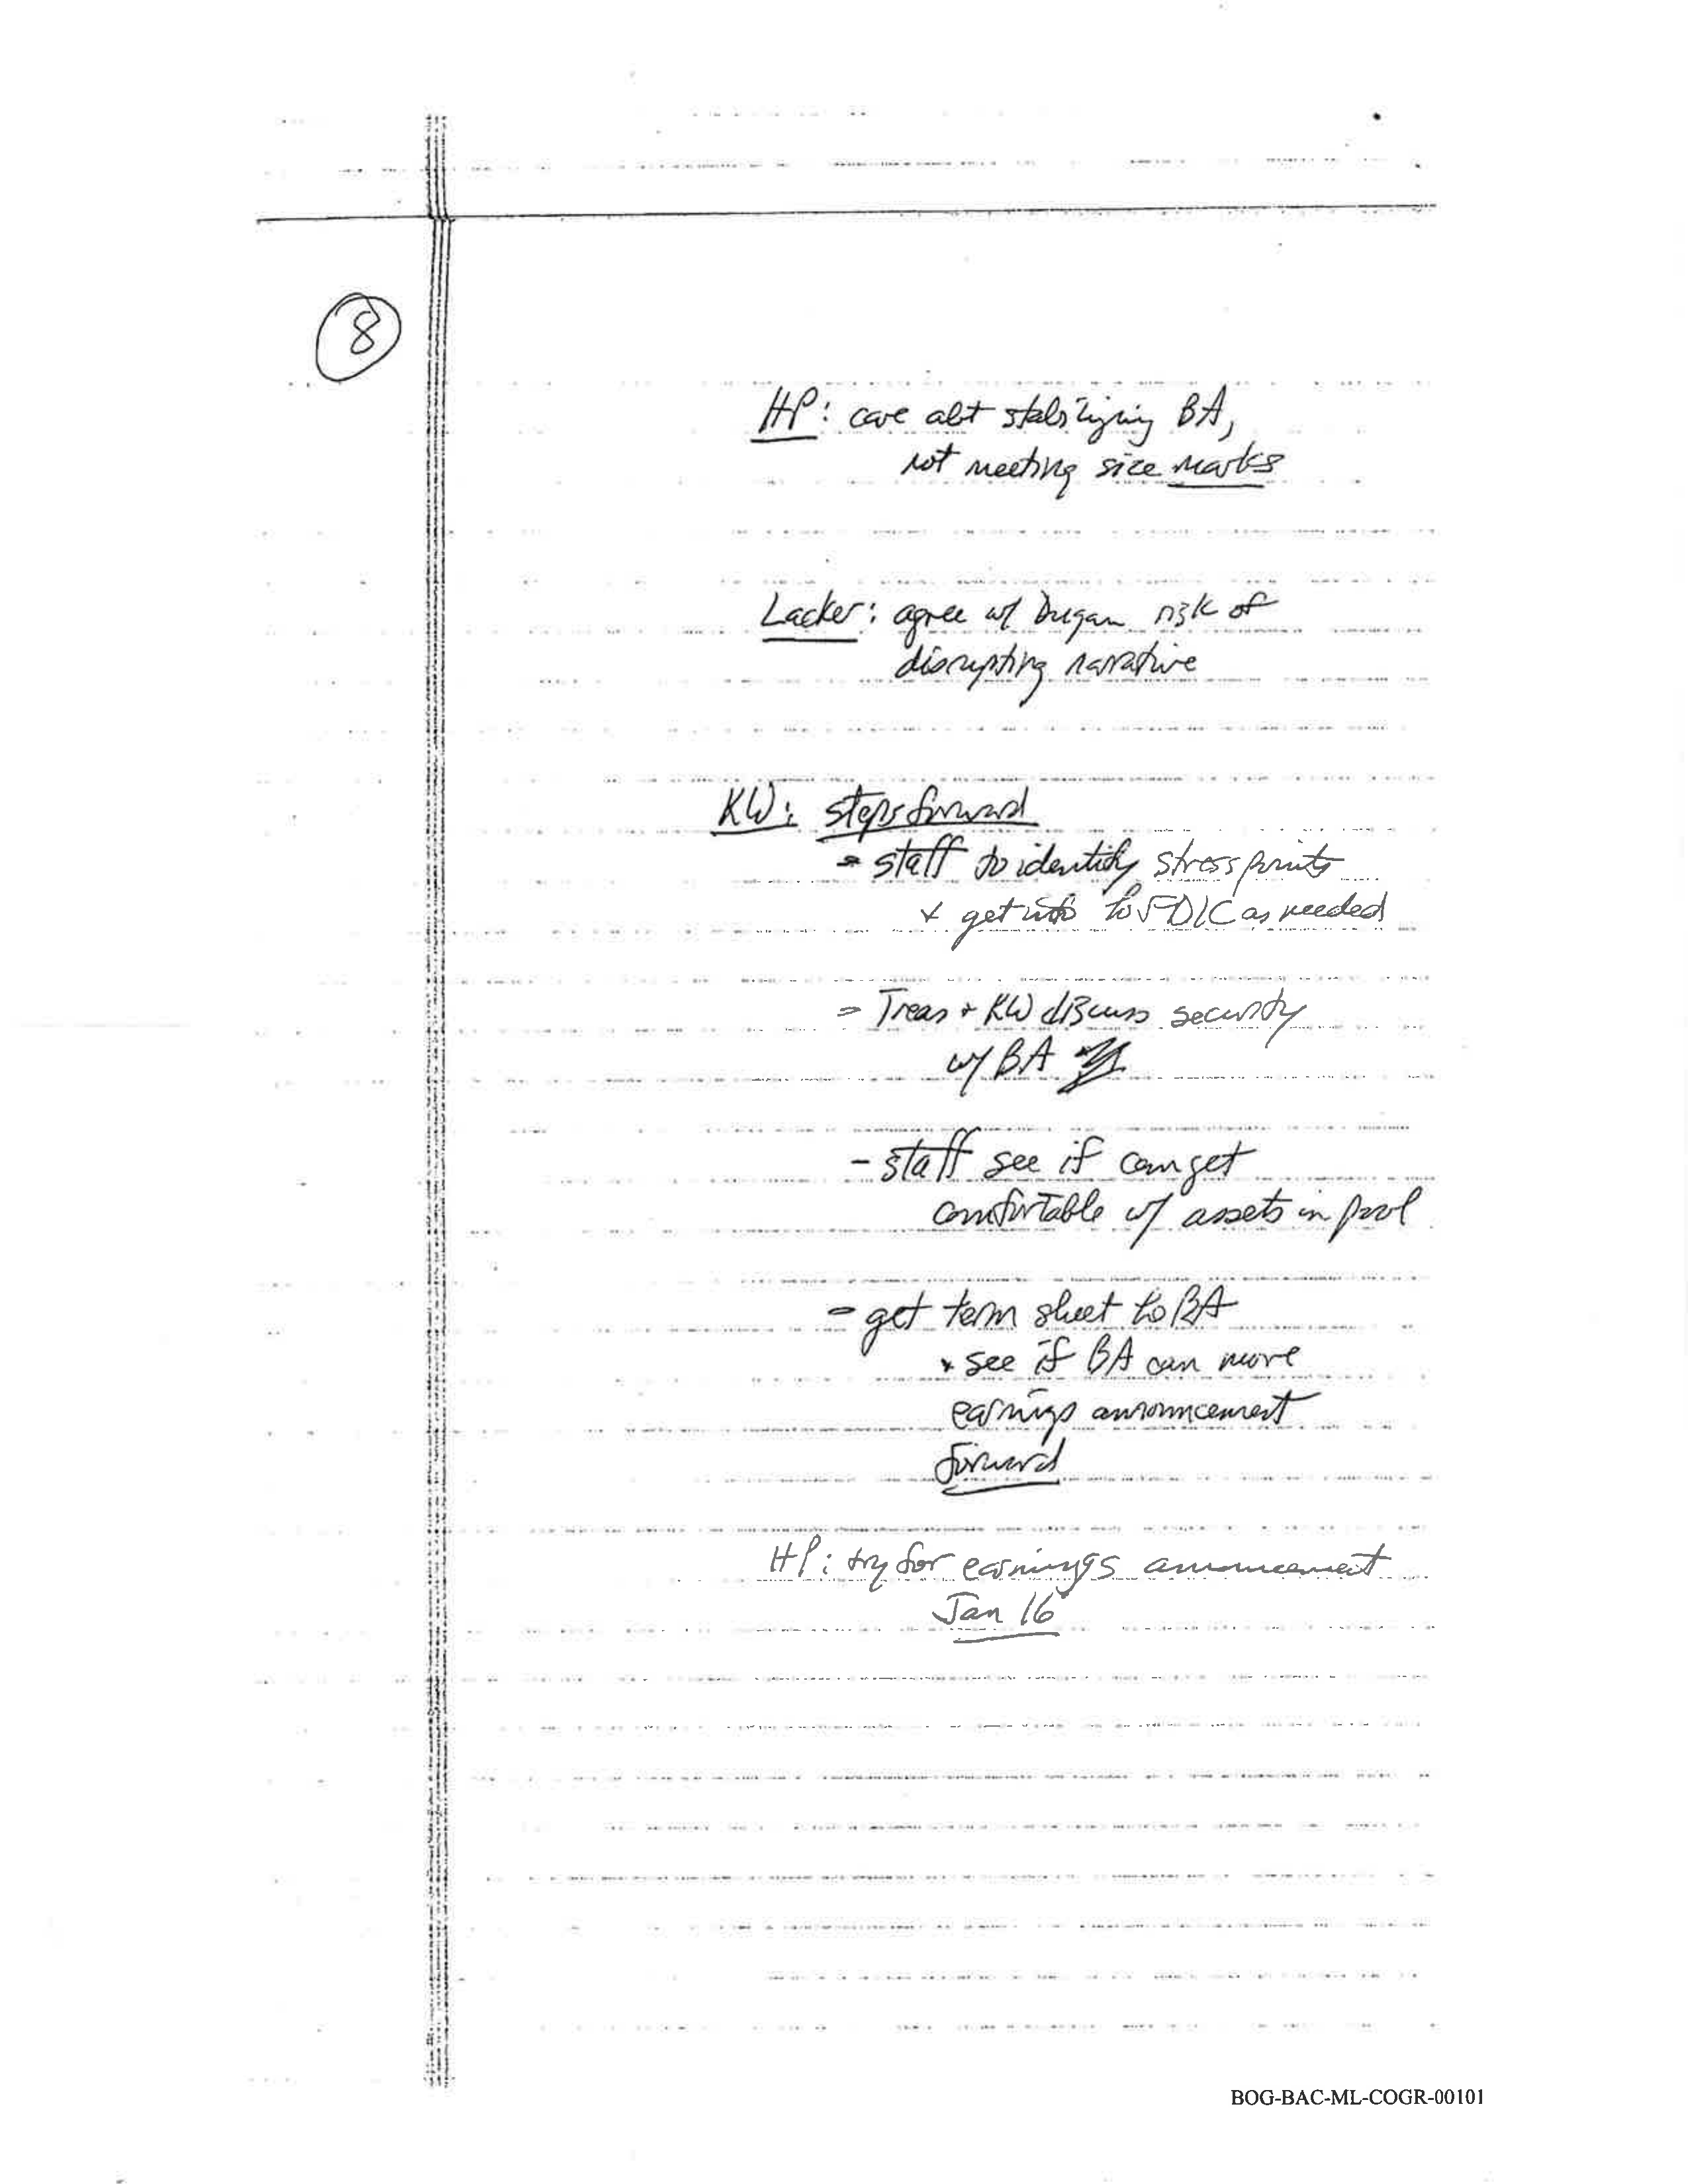 8
HP: care abt stabilizing BA,
not meeting size marks
Lacker: agree w/ Dugan risk of
disrupting narrative
KW: steps forward
- staff to identify stress points
+ get info to FDIC as needed
- Treas + KW discuss security
w/ BA
- staff see if can get
comfortable w/ assets in pool
- get term sheet to BA
* see if BA can move
earnings announcement
forward
HP: try for earnings announcement
Jan 16
BOG-BAC-ML-COGR-00101